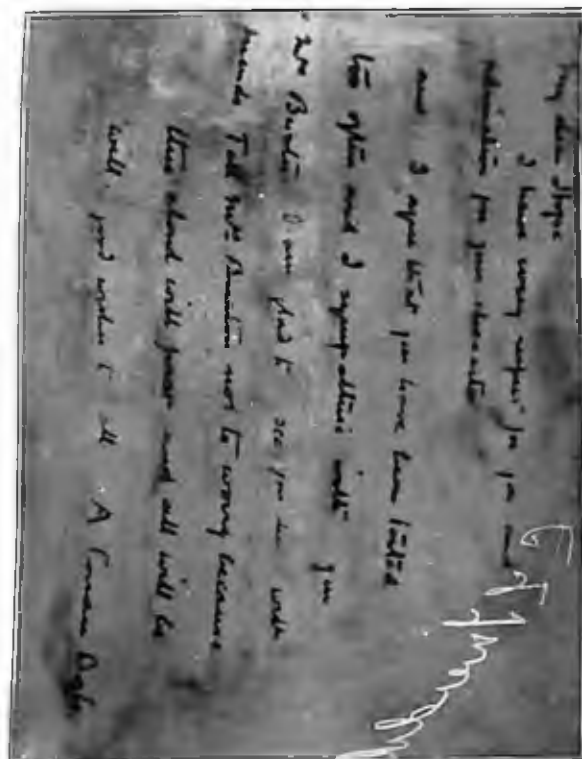 My dear Hope
I have every respect for you and
admiration for your character
and I agree that you have been tested
too often and I sympathise with you
Mr Buxton I am glad to see you here with
friends Tell Mrs Buxton not to worry because
this cloud will pass and all will be
well. good wishes to all A Conan Doyle